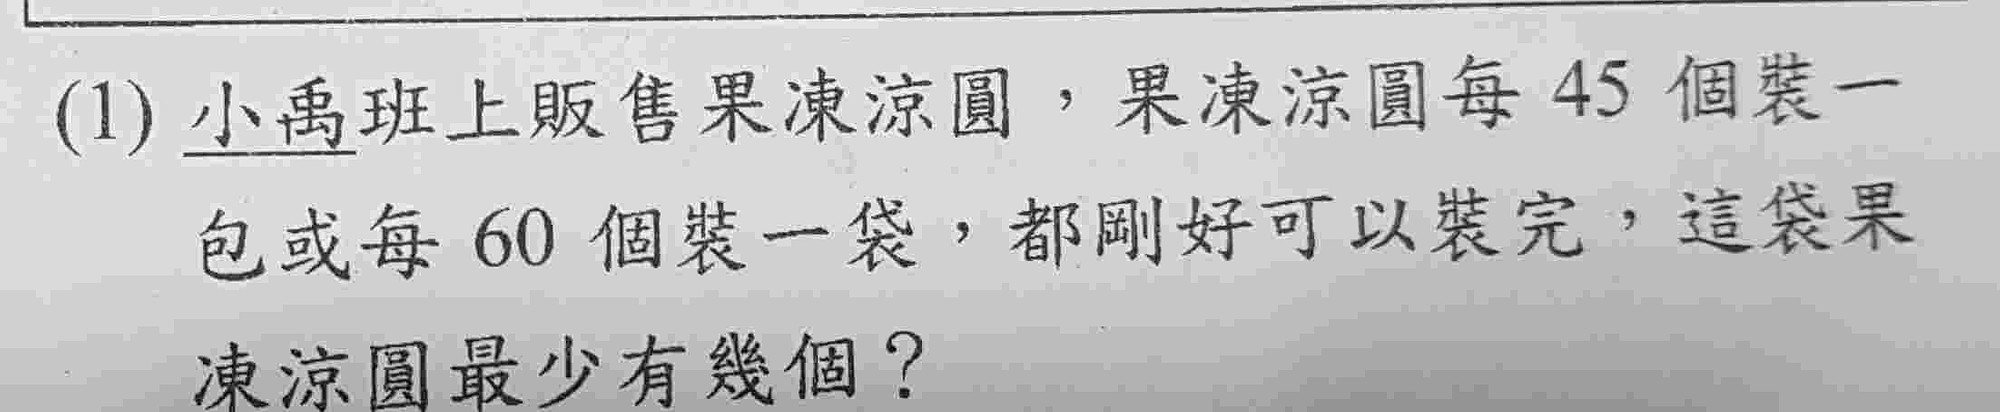 (1) 小禹班上販售果凍涼圓，果凍涼圓每 45 個裝一
包或每 60 個裝一袋，都剛好可以裝完，這袋果
凍涼圓最少有幾個？